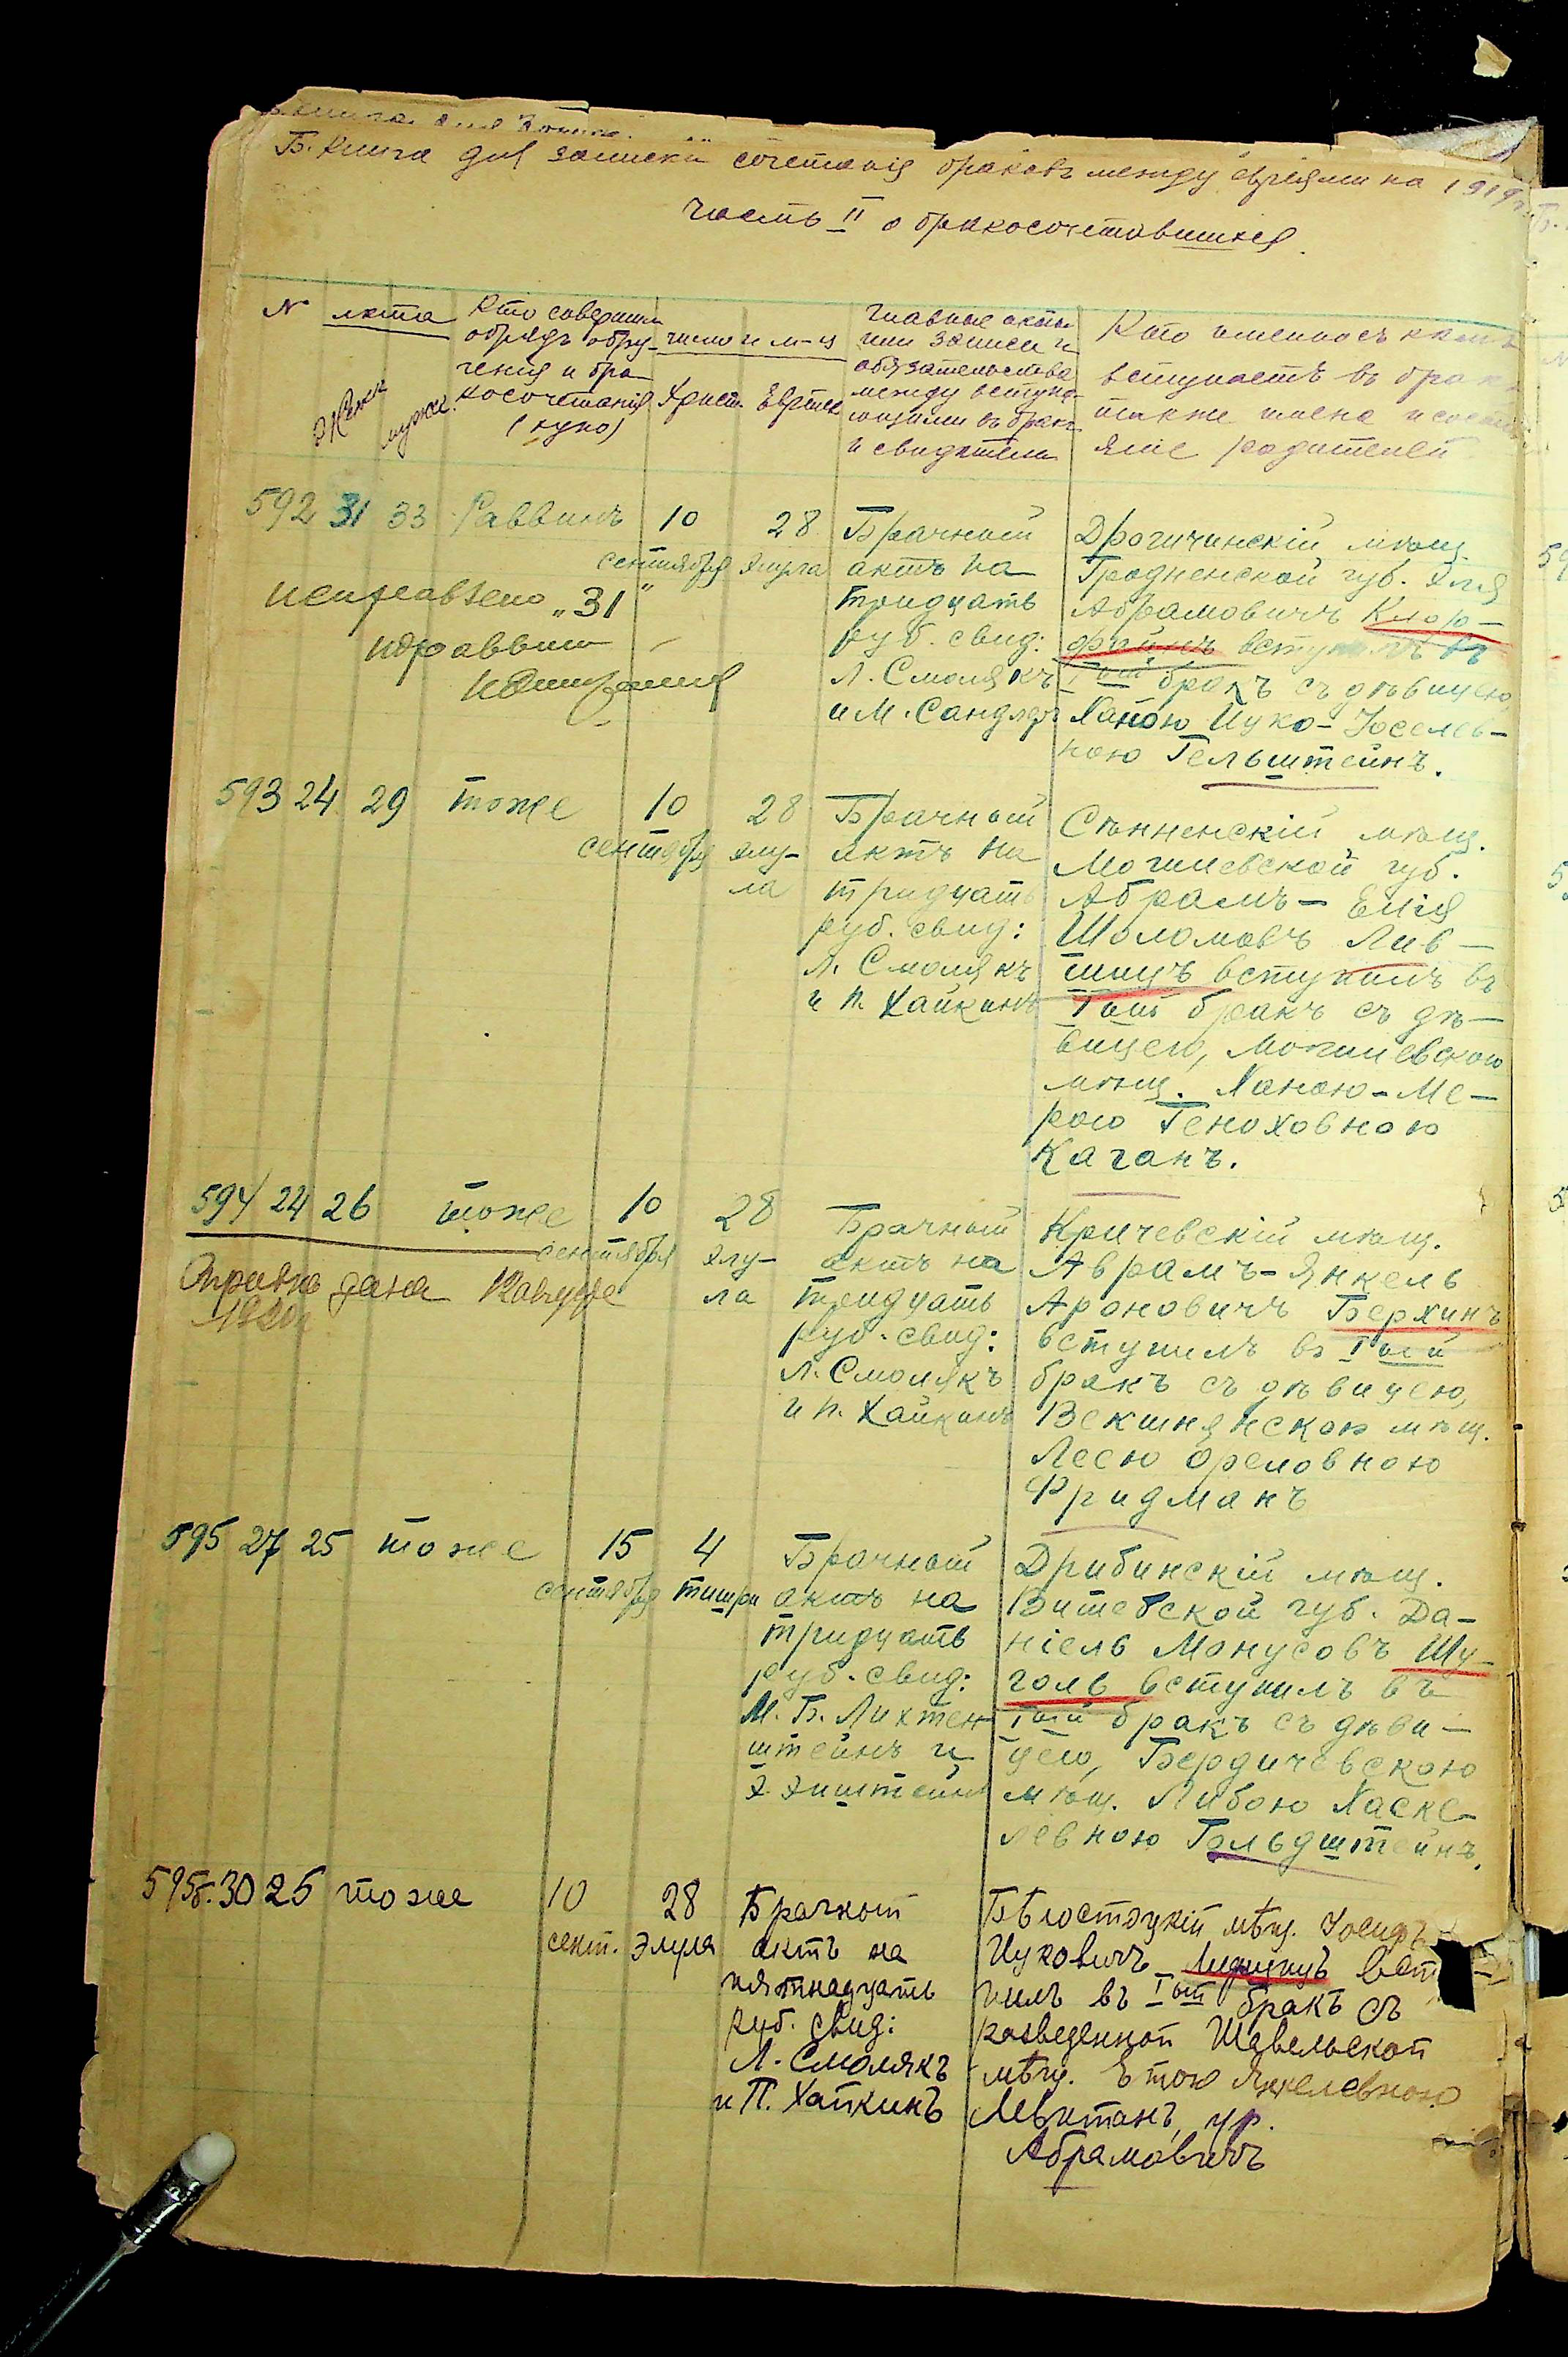 Б. Книга для записки сочетанія браковъ между евреями на 1919 г.
часть II о бракосочетавшихся.
N лета
Жены
мужа.
Кто совершил
обрядъ обру-
ченія и бра-
косочетанія
число и м-ц
Христ. Еврейск
главные акты
или записи и
обязательства
между вступа-
ющими въ бракъ
и свидетели
Кто именно съ кемъ
вступаетъ въ бракъ
также имена и состо
яніе родителей
592 31 33 Раввинъ 10 28
сентября элула
исправлено „31"
Брачный
актъ на
тридцать
руб. свид:
Л. Смолякъ
и М. Сандлеръ
Дрогичинскій мѣщ.
Гродненской губ. Эля
Абрамовичъ Клор-
файнъ вступилъ въ
Iый бракъ съ дѣвицею,
Ханою Ицко-Іоселев-
ною Гельштейнъ.
593 24 29 тоже 10 28
сентября элу-
ла
Брачный
актъ на
тридцать
руб. свид:
Л. Смолякъ
и П. Хайкинъ
Сѣнненскій мѣщ.
Могилевской губ.
Абрамъ-Елія
Шоломовъ Лив-
шицъ вступилъ въ
Iый бракъ съ дѣ-
вицею, Могилевскою
мѣщ. Ханою-Ме-
рою Геноховною
Каганъ.
594 24 26 тоже 10 28
сентября элу-
ла
дана
Брачный
актъ на
тридцать
руб. свид:
Л. Смолякъ
и П. Хайкинъ
Кричевскій мѣщ.
Аврамъ-Янкель
Ароновичъ Берхинъ
вступилъ въ Iый
бракъ съ дѣвицею,
Векшнянскою мѣщ.
Лесю Ореловною
Фридманъ
595 27 25 тоже 15 4
сентября тишри
Брачный
актъ на
тридцать
руб. свид:
М. Б. Лихтен-
штейнъ и
Х. Эпштейнъ
Дрибинскій мѣщ.
Витебской губ. Да-
ніель Монусовъ Шу-
голь вступилъ въ
Iый бракъ съ дѣви-
цею, Бердичевскою
мѣщ. Либою Хаске-
левною Гольдштейнъ.
595б. 30 25 тоже 10 28
сент. Элула
Брачный
актъ на
пятнадцать
руб. свид:
Л. Смолякъ
и П. Хайкинъ
Бѣлостоцкій мѣщ. Іосифъ
Ицковичъ вст
пилъ въ Iый бракъ съ
разведенной Шавельской
мѣщ. Этою Янкелевною
Левитанъ, ур.
Абрамовичъ